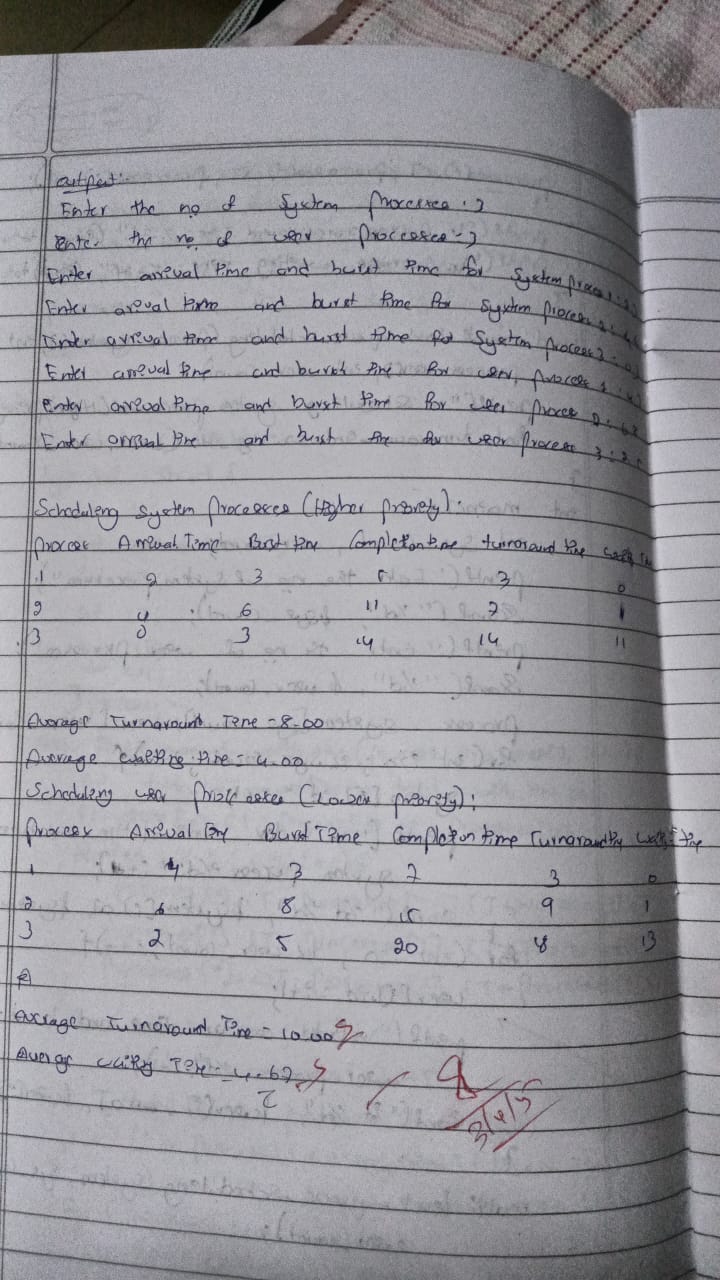 output:
Enter the no of System processes : 3
Enter the no of user processes - 3
Enter arrival time and burst time for System process 1:
Enter arrival time and burst time for System process 2:
Enter arrival time and burst time for System process 3:
Enter arrival time and burst time for user process 1:
Enter arrival time and burst time for user process 2:
Enter arrival time and burst time for user process 3:
Scheduling System processes (Higher priority):
process Arrival Time Burst time Completion time turnaround time waiting time
1 2 3 5 3 0
2 4 6 11 7 1
3 0 3 14 14 11
Average Turnaround Time = 8.00
Average waiting time = 4.00
Scheduling user processes (Lower priority):
Process Arrival Burst Time Completion time Turnaround waiting time
1 4 3 7 3 0
2 6 8 15 9 1
3 2 5 20 18 13
Average Turnaround Time = 10.00
Average waiting Time = 4.67